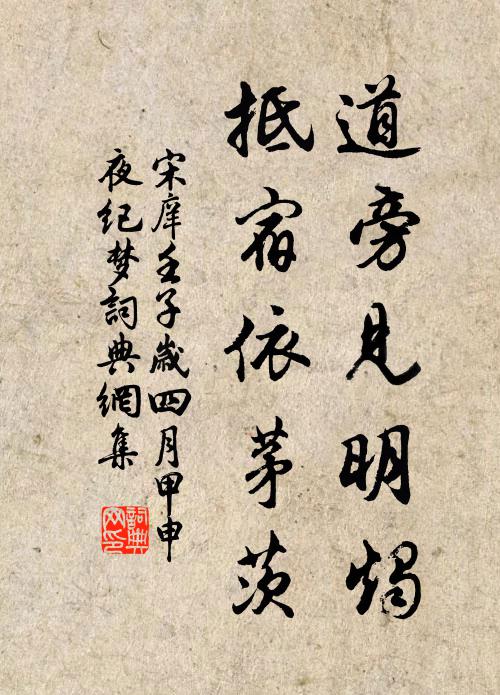 道旁見明燭
抵宿依茅茨
宋庠壬子歲四月甲申
夜纪梦詞典網集
詞典
网印